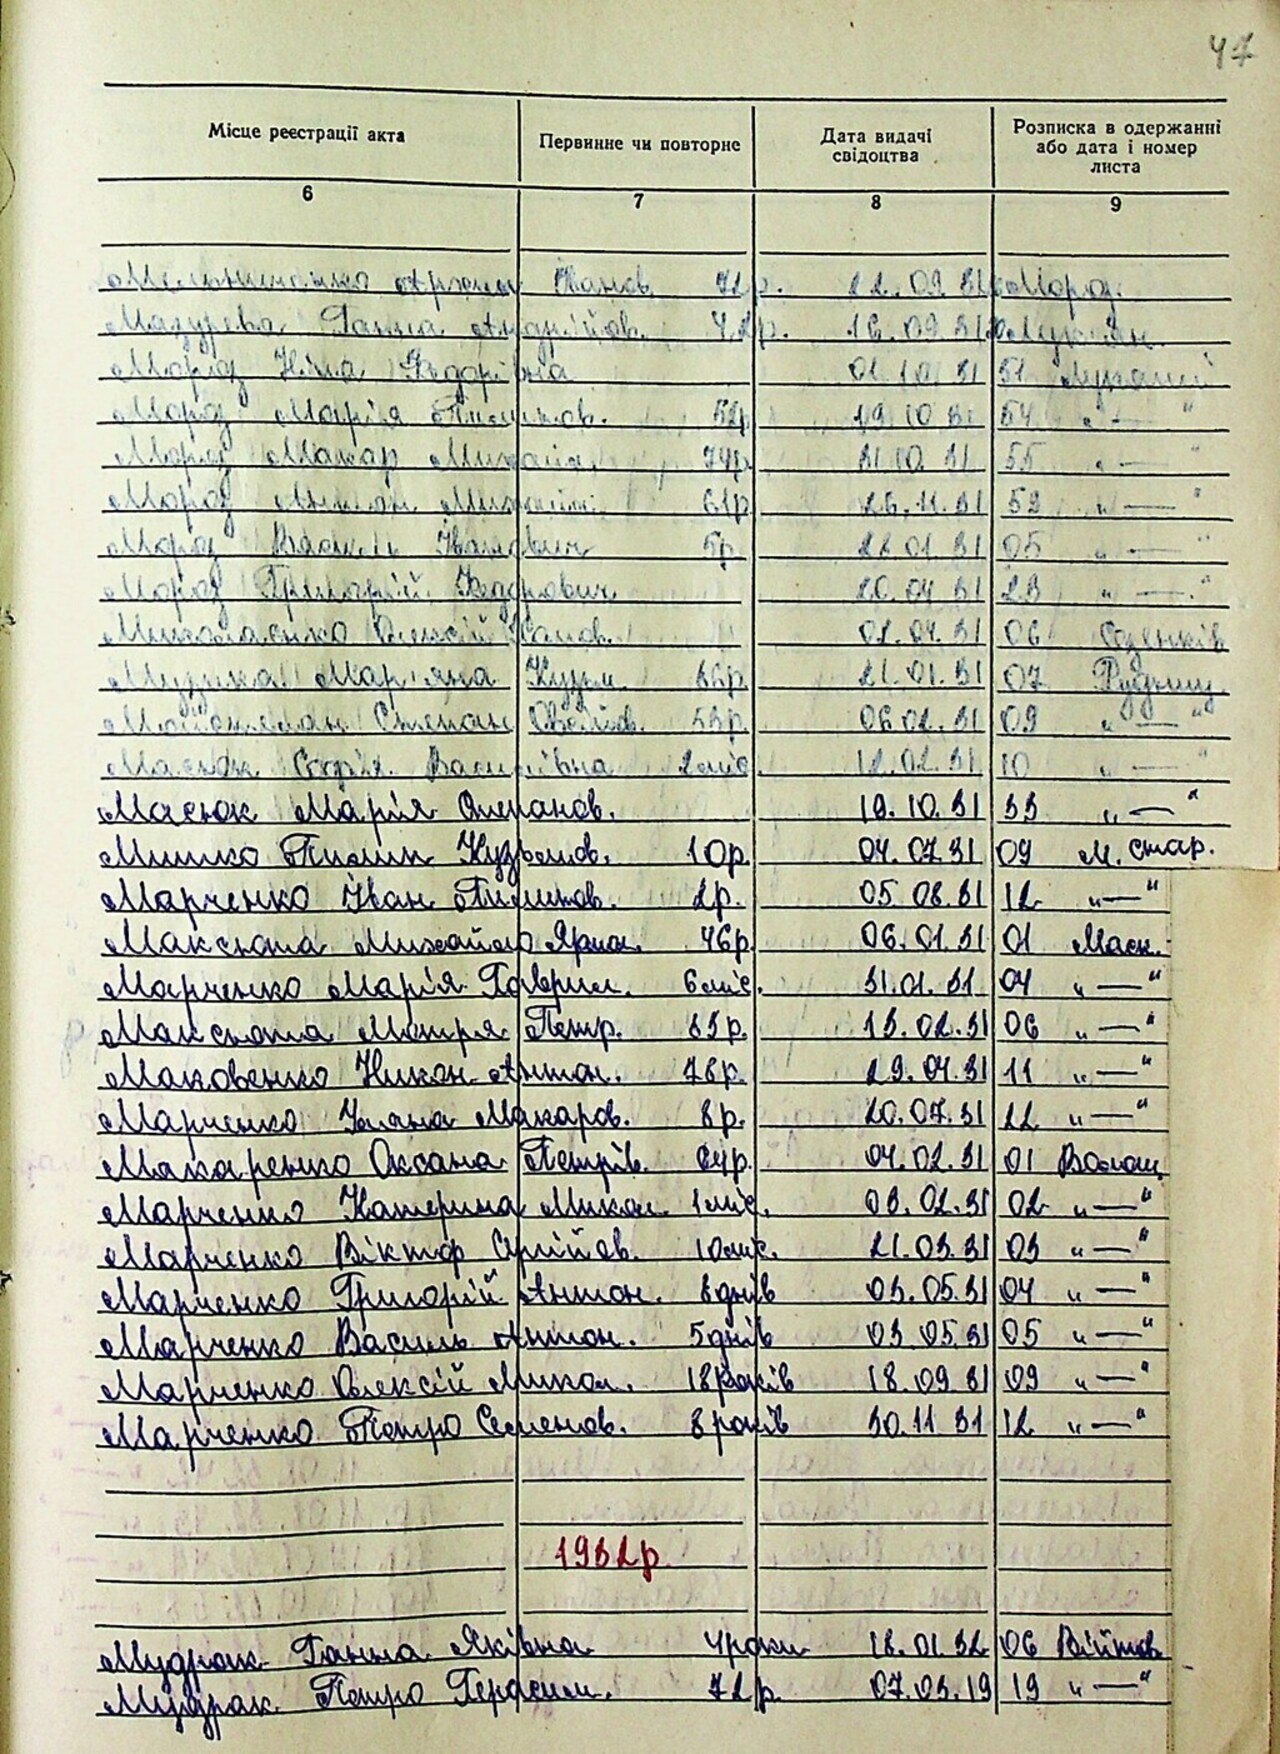 47
Місце реєстрації акта
Первинне чи повторне
Дата видачі
свідоцтва
Розписка в одержанні
або дата і номер
листа
6 7 8 9
Іванов. 72р. 22.09.31 Мороз.
Мазурева Ганна Андрійов. 42р. 16.09.31
Мороз Ніна Федорівна 01.10.31 51
Мороз Марія Пилипов. 52р 19.10.31 54 „—"
Мороз Макар Михайл. 74р. 31.10.31 55 „—"
Мороз Михайл. 61р 26.11.31 59 „—"
Мороз Василь Іванович 5р. 22.01.31 05 „—"
Мороз Григорій Федорович 20.04.31 23 „—"
Миколаєнко Олексій Іванов. 02.04.31 06 Озенків
Музика Мар'яна Кузьм. 66р. 21.01.31 07 Рудниц.
Степан 53р. 06.02.31 09 „—"
Масюк Софія Василівна 2міс. 12.02.31 10 „—"
Масюк Марія Степанов. 19.10.31 33 „—"
Мишко Пилип Кузьмов. 10р. 04.07.31 09 М. стар.
Марченко Іван Пилипов. 2р. 05.08.31 12 „—"
Максюта Михайло Ярмол. 46р. 06.01.31 01 Маси.
Марченко Марія Гаврил. 6міс. 31.01.31 04 „—"
Максюта Мотря Петр. 63р. 13.02.31 06 „—"
Маковенко Никон Антон. 78р. 29.04.31 11 „—"
Марченко Уляна Макаров. 8р. 20.07.31 22 „—"
Макаренко Оксана Петрів. 64р. 04.02.31 01 Волош.
Марченко Катерина Микол. 1міс. 09.02.31 02 „—"
Марченко Віктор Сергійов. 10міс. 21.03.31 03 „—"
Марченко Григорій Антон. 8днів 03.05.31 04 „—"
Марченко Василь Антон. 5днів 03.05.31 05 „—"
Марченко Олексій Микол. 18років 18.09.31 09 „—"
Марченко Петро Семенов. 8років 30.11.31 12 „—"
1932р.
Мудрак Ганна Яківна 4роки 18.01.32 06 Війтов.
Мудрак Петро Герасим. 72р. 07.03.19 19 „—"